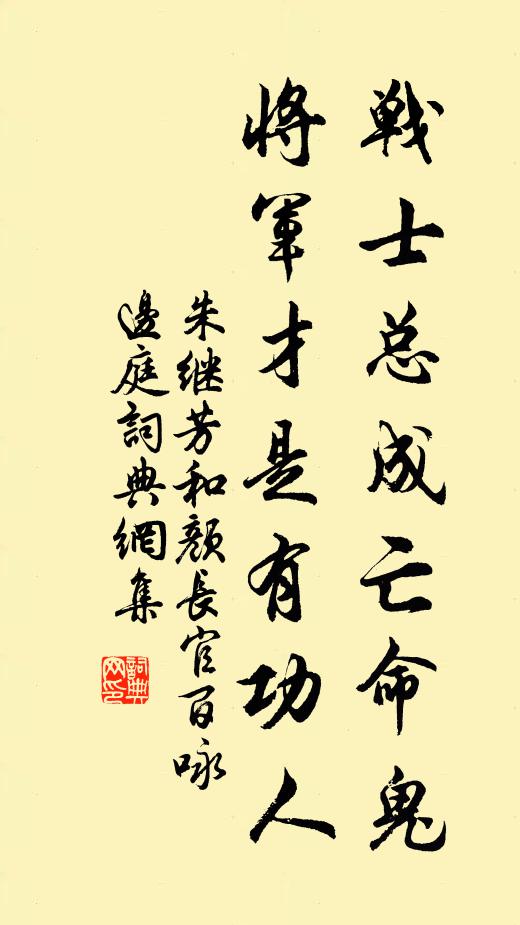 戦士总成亡命鬼
将军才是有功人
朱继芳和颜長官百咏
邊庭詞典網集
詞典网印